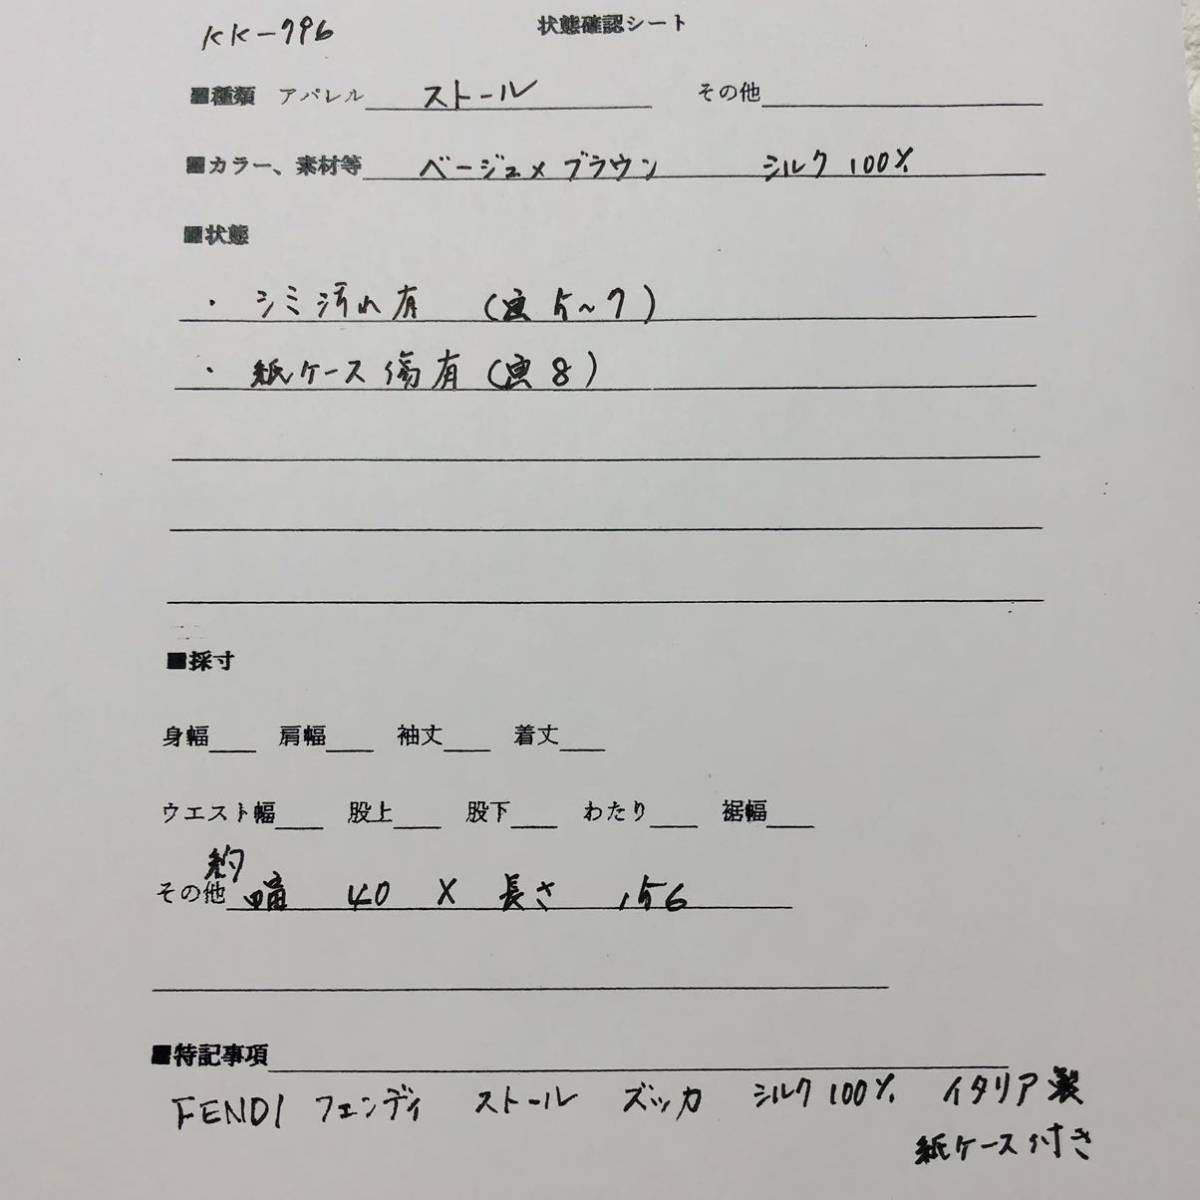 KK-796
状態確認シート
■種類 アパレル ストール その他
■カラー、素材等 ベージュ×ブラウン シルク100%
■状態
・シミ汚れ有 (画5~7)
・紙ケース傷有(画8)
■採寸
身幅 肩幅 袖丈 着丈
ウエスト幅 股上 股下 わたり 裾幅
約
その他 幅 40 × 長さ 156
■特記事項
FENDI フェンディ ストール ズッカ シルク100% イタリア製
紙ケース付き